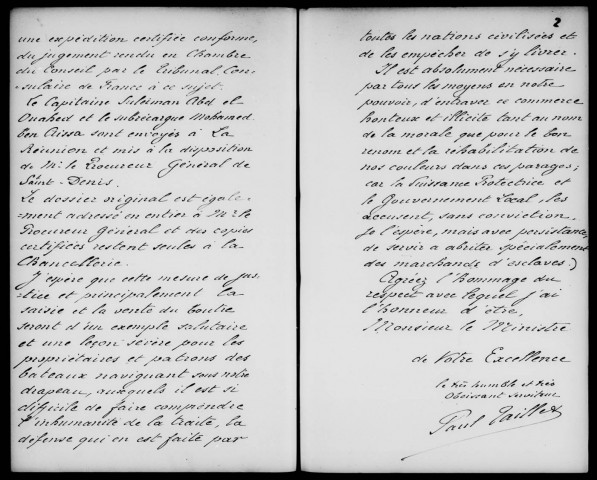 une expédition certifiée conforme,
du jugement rendu en Chambre
du Conseil par le Tribunal Con-
sulaire de France à ce sujet.
Le Capitaine Suleiman Abd el
Ouahed et le subrécargue Mohamed
ben Aissa sont envoyés à La
Réunion et mis à la disposition
de Mr le Procureur Général de
Saint-Denis.
Le dossier original est égale-
ment adressé en entier à Mr le
Procureur Général et des copies
certifiées restent seules à la
Chancellerie.
J'espère que cette mesure de jus-
tice et principalement la
saisie et la vente du boutre
seront d'un exemple salutaire
et une leçon sévère pour les
propriétaires et patrons des
bateaux naviguant sous notre
drapeau, auxquels il est si
difficile de faire comprendre
l'inhumanité de la traite, la
défense qui en est faite par
2
toutes les nations civilisées et
de les empêcher de s'y livrer.
Il est absolument nécessaire
par tous les moyens en notre
pouvoir, d'entraver ce commerce
honteux et illicite tant au nom
de la morale que pour le bon
renom et la réhabilitation de
nos couleurs dans ces parages;
car la Puissance Protectrice et
le Gouvernement Local, les
accusent, sans conviction,
je l'espère, mais avec persistance
de servir à abriter spécialement
des marchands d'esclaves.)
Agréez l'hommage du
respect avec lequel j'ai
l'honneur d'être,
Monsieur le Ministre
de Votre Excellence
le très humble et très
Obéissant Serviteur
Paul Taillet